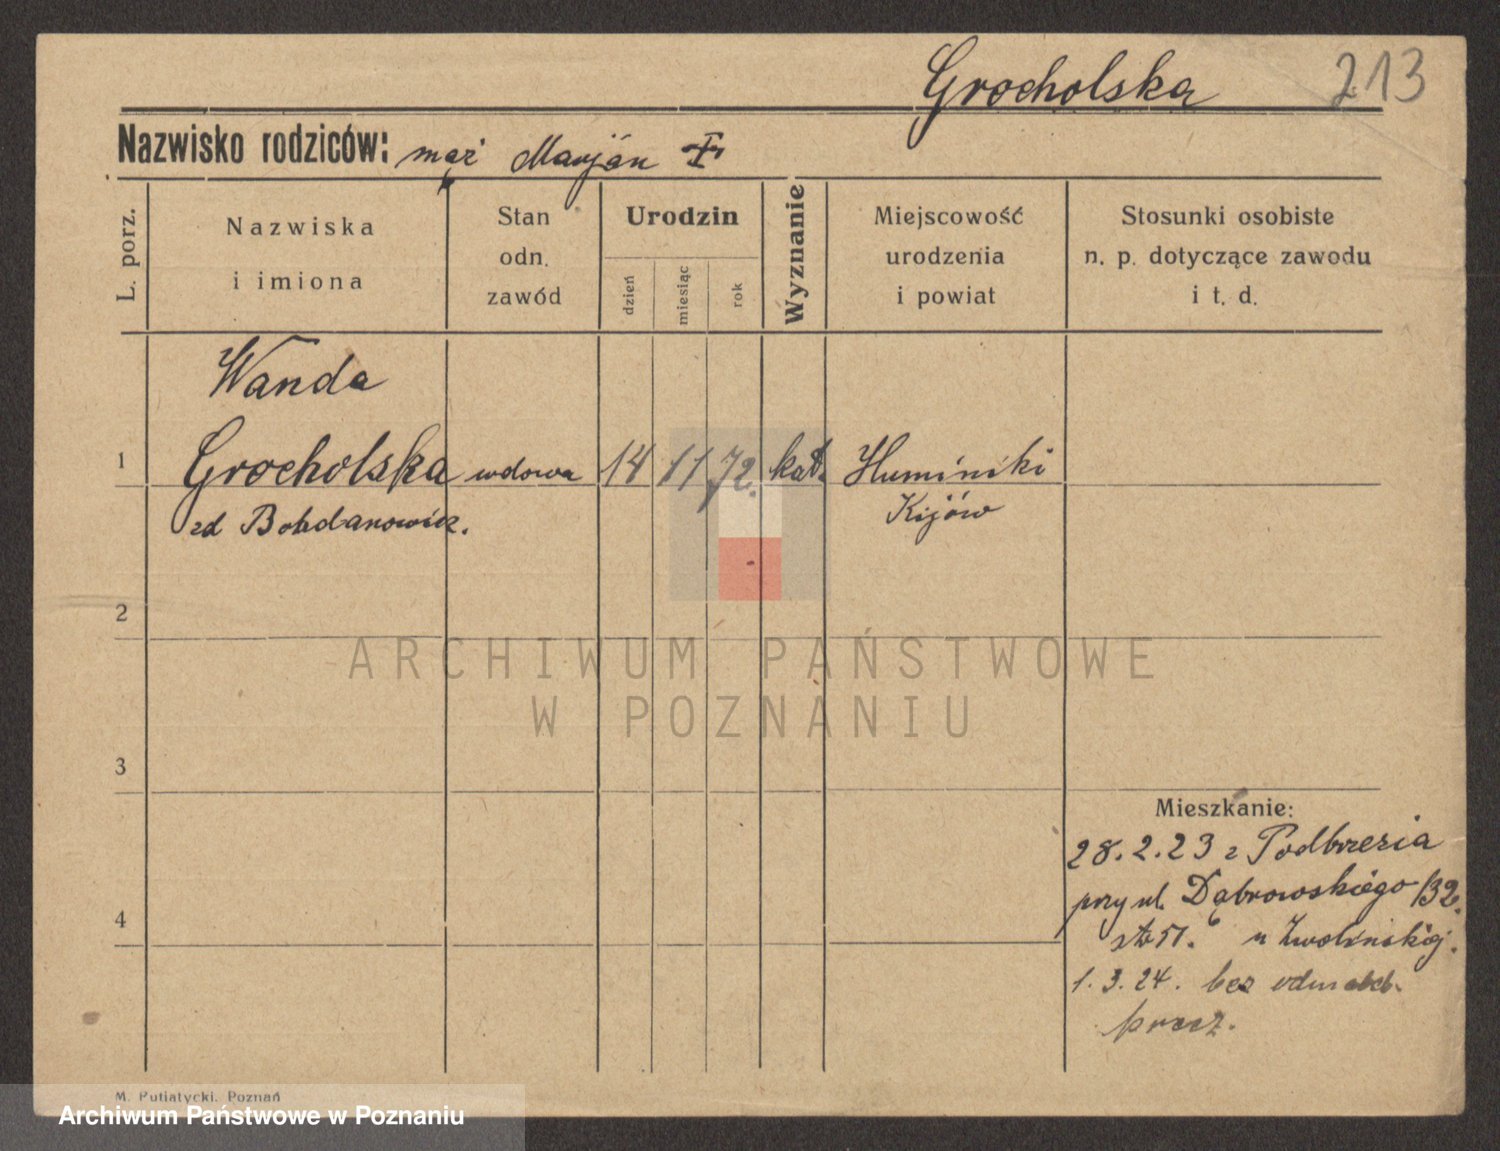 Grocholska 213
Nazwisko rodziców: mąż Maryjan
L. porz.
Nazwiska
i imiona
Stan
odn.
zawód
Urodzin
dzień
miesiąc
rok
Wyznanie
Miejscowość
urodzenia
i powiat
Stosunki osobiste
n. p. dotyczące zawodu
i t. d.
Wanda
1 Grocholska wdowa 14 11 72. kat. Huminiki
zd Bohdanowicz. Kijów
2
ARCHIWUM PAŃSTWOWE
W POZNANIU
3
Mieszkanie:
28.2.23 z Podbrzezia
przy ul. Dąbrowskiego
4
u Zwolińskiej.
1.3.24. bez
M. Putiatycki. Poznań
Archiwum Państwowe w Poznaniu